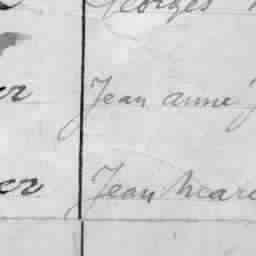 Georges
er Jean anne J
er Jean marc